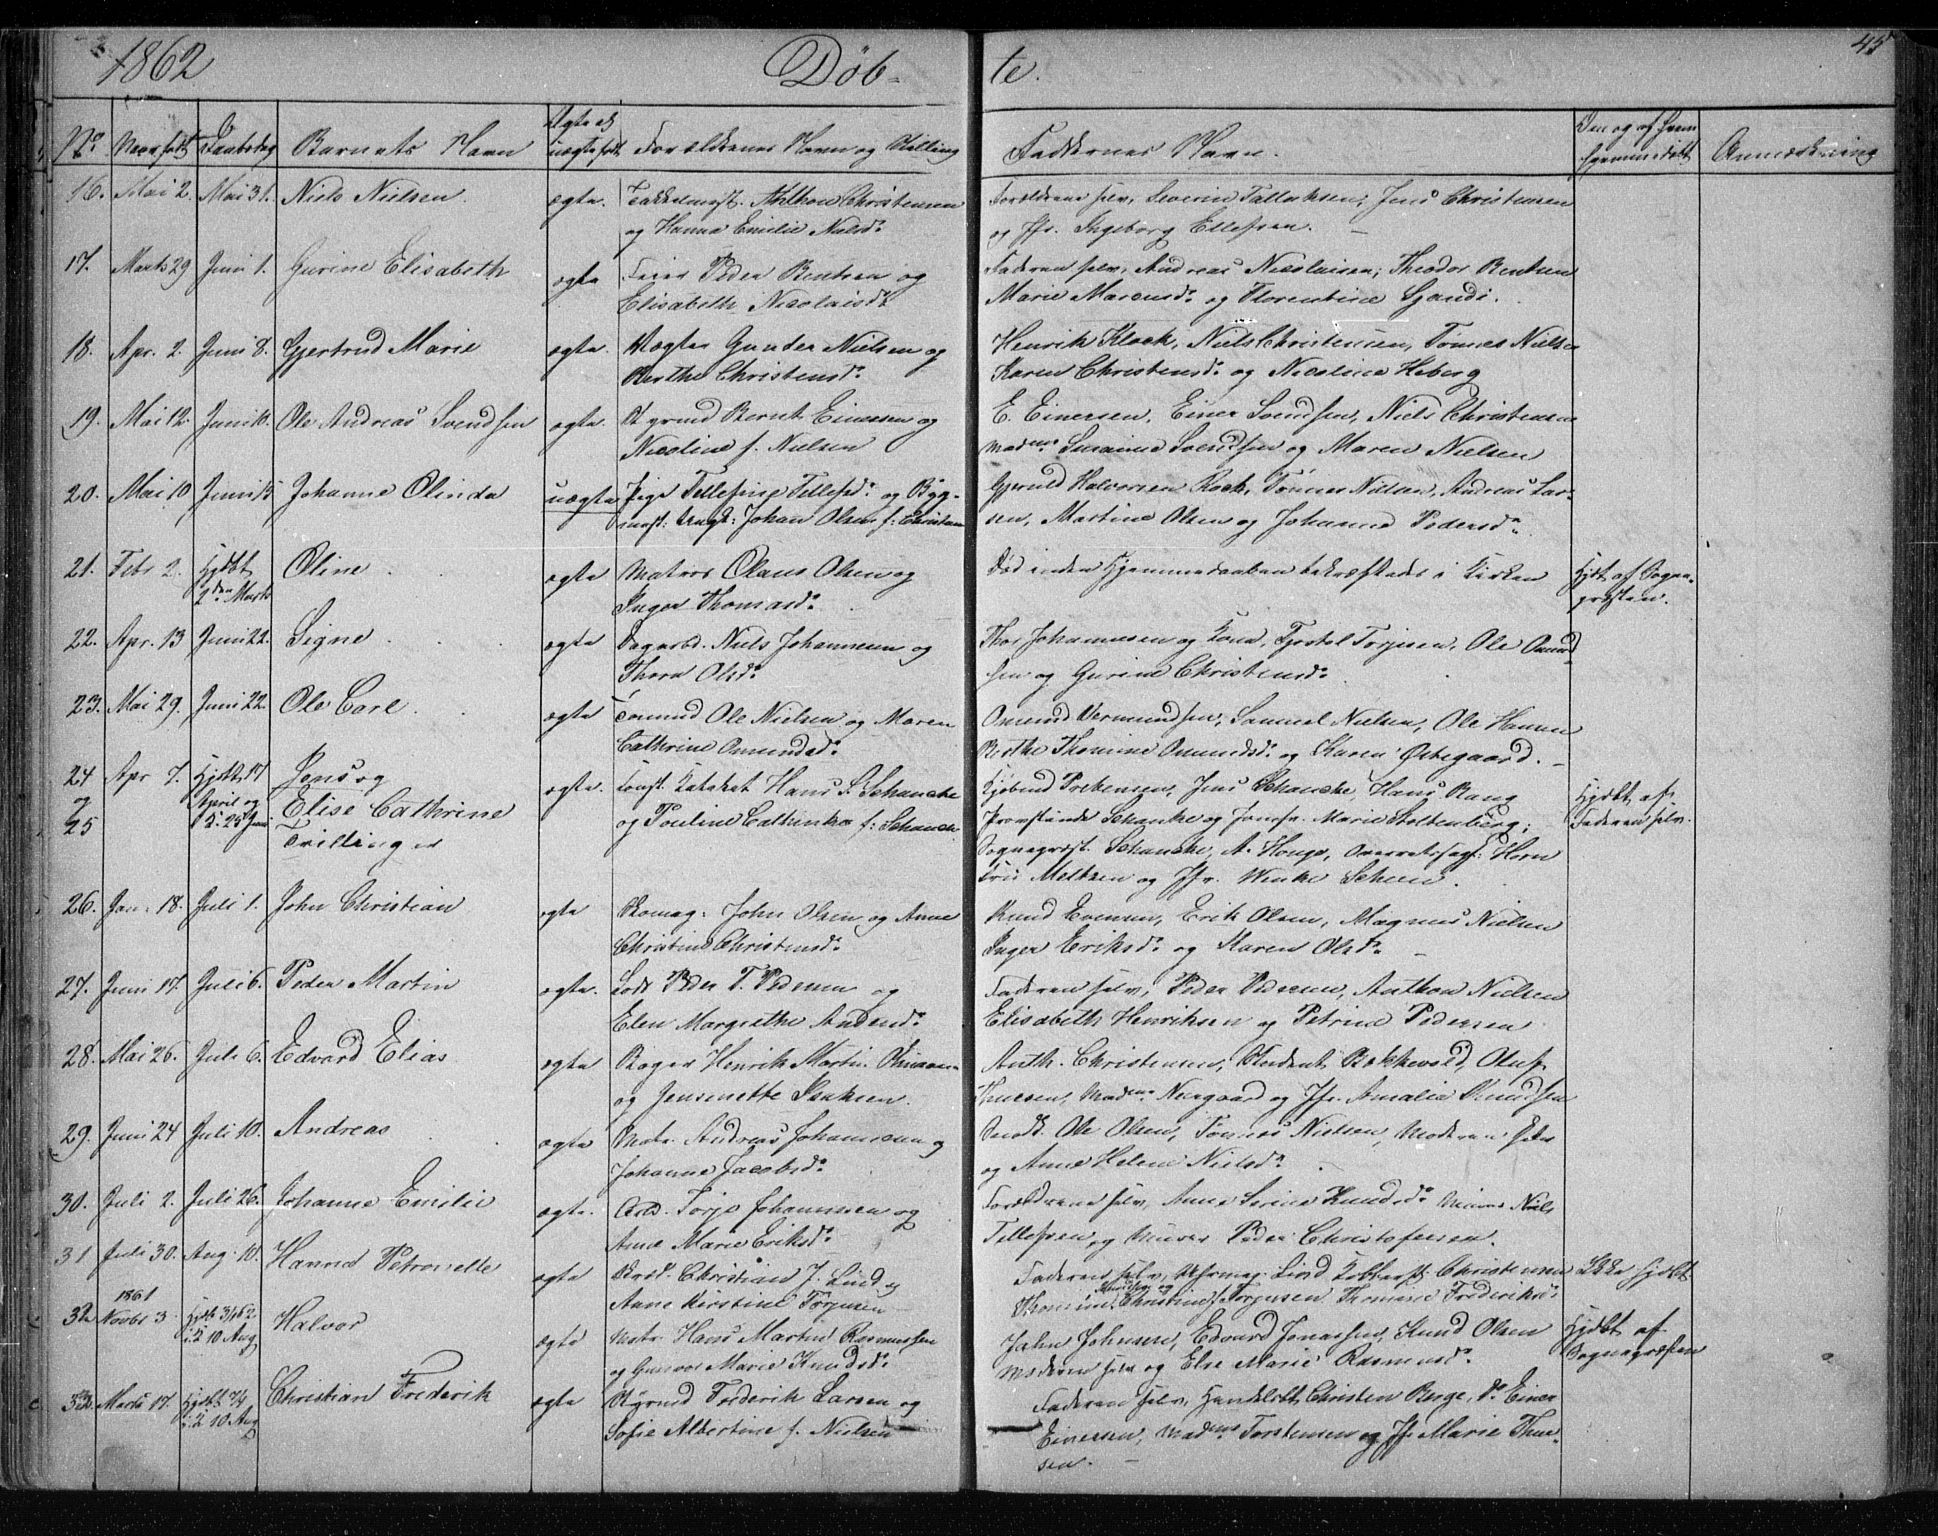 1862 Døb- te. 45
No Naar født Daabsdag Barnets Navn Ægte el. uægte født Forældrenes Navn og Stilling Faddernes Navn. Om og af hvem hjemmedøbt Anmærkning
16. Mai 2. Mai 31. Niels Nielsen. ægte. Takkelmest. Christensen Forældrene selv, Severin Tallaksen, Jens Christensen
og Hanna Emilie Nielsd. og Jfr. Ingeborg Ellefsen.
17. Marts 29 Juni 1. Gurine Elisabeth ægte Peder Bentsen og Faderen selv, Andreas Nicolaisen, Theodor Bentsen
Elisabeth Nicolaisd. Marie Marcusd. og Florentine
18. Apr. 2. Juni 8. Gjertrud Marie ægte. Vægter Gunder Nielsen og Henrik Klock, Niels Christensen, Tønnes Nielsen
Berthe Christensd. Karen Christensd. og Nicoline Heberg
19. Mai 12. Juni 10. Ole Andreas Svendsen ægte. Styrmd Bernt Einersen og E. Einersen, Einer Svendsen, Niels Christensen
Nicoline f. Nielsen Madme Susanne Svendsen og Maren Nielsen
20. Mai 10 Juni 15 Johanne Olinda uægte Pige Tellefine Tellefsd. og Byg- Gjeruld Halvorsen Rock, Tønnes Nielsen, Andreas Lar-
mest. Johan Olsen f. Christians sen, Martine Olsen og Johanne Pedersd.
21. Febr 2. Hjdbt Oline ægte Matros Olaus Olsen og Død inden Hjemmedaaben bekræftedes i Kirken Hjdt af Sogne-
2den Marts Inger Thomasd. præsten.
22. Apr. 13 Juni 22. Signe ægte Dagarbd. Niels Johannesen og Thor Johannesen og Kone, Kjøstel Torjesen, Ole Omund-
Thora Olsd. sen og Gurine Christensd.
23. Mai 29. Juni 22. Ole Carl ægte Tømmd Ole Nielsen og Maren Omund Vermundsen, Samuel Nielsen, Ole Hansen
Cathrine Omundsd. Berthe Thomine Omundsd. og Karen Østegaard.
24 Apr 7. Hjdbt 17 Jens og ægte. Const. Kateket Hans S. Schancke Jens Schancke, Hans Hjdbt af
og April og Elise Cathrine og Pouline Cathinka f. Schancke Provstinde Schanke og Jomfr. Marie Stoltenberg; Faderen selv.
25 i. 25 Juni Tvillinger Sognepræst. Schancke, A. Houge, Overretssagf. Horn
Fru og Jfr. Wenke
26. Jan. 18. Juli 1. John Christian ægte Skomag: John Olsen og Anne Knud Evensen, Erik Olsen, Magnus Nielsen
Christine Christensd. Inger Eriksd. og Maren Olsd.
27. Juni 17. Juli 6. Peder Martin ægte. Lods Peder T. Pedersen og Faderen selv, Peder Pedersen, Anthon Nielsen
Elen Margrethe Andersd. Elisabeth Henriksen og Petrine Pedersen
28. Mai 26. Juli 6. Edvard Elias ægte Bager Henrik Martin og Jensinette Isaksen. Anth. Christensen, Student Bakkevold, Oluf
Thuesen, Madme Neergaard og Jfr. Amalia Knudsen
29. Juni 24 Juli 10. Andreas ægte Matr. Andreas Johannesen og Ole Olsen, Tønnes Nielsen, Moderen selv
Johanne Jacobsd. og Anne Helene Nielsd.
30. Juli 2. Juli 26. Johanne Emilie ægte. Arbd. Torjs Johannesen og Forældrene selv, Anne Serine Knudsd. Niels
Anne Marie Eriksd. Tellefsen og Peder Christofersen.
31 Juli 30. Aug. 10. Hanna Petronelle ægte Christian J. Lind og Faderen selv, Lind Christensen hjdbt
Anne Kirstine Torjusen Christine Torjusen Thomine Frederiksd.
1861
32 Novbr 3 Hjdbt 3/1 62 Halvor ægte Matr. Hans Martin Rasmussen Jahn Johnsen, Edvard Jonassen, Knud Olsen Hjdbt af
i. 2 10 Aug og Gunvor Marie Knudsd. Moderen selv og Else Marie Rasmusd. Sognepræsten
33. Marts 17. Hjdbt 7/4 Christian Frederik ægte Styrmd Frederik Larsen og Faderen selv, Handelsbt. Christen Berge, Do Einer
i. 2 10 Aug Sofie Albertine f. Nielsen Einersen, Madme Torstensen og Jfr Marie Thue-
sen.